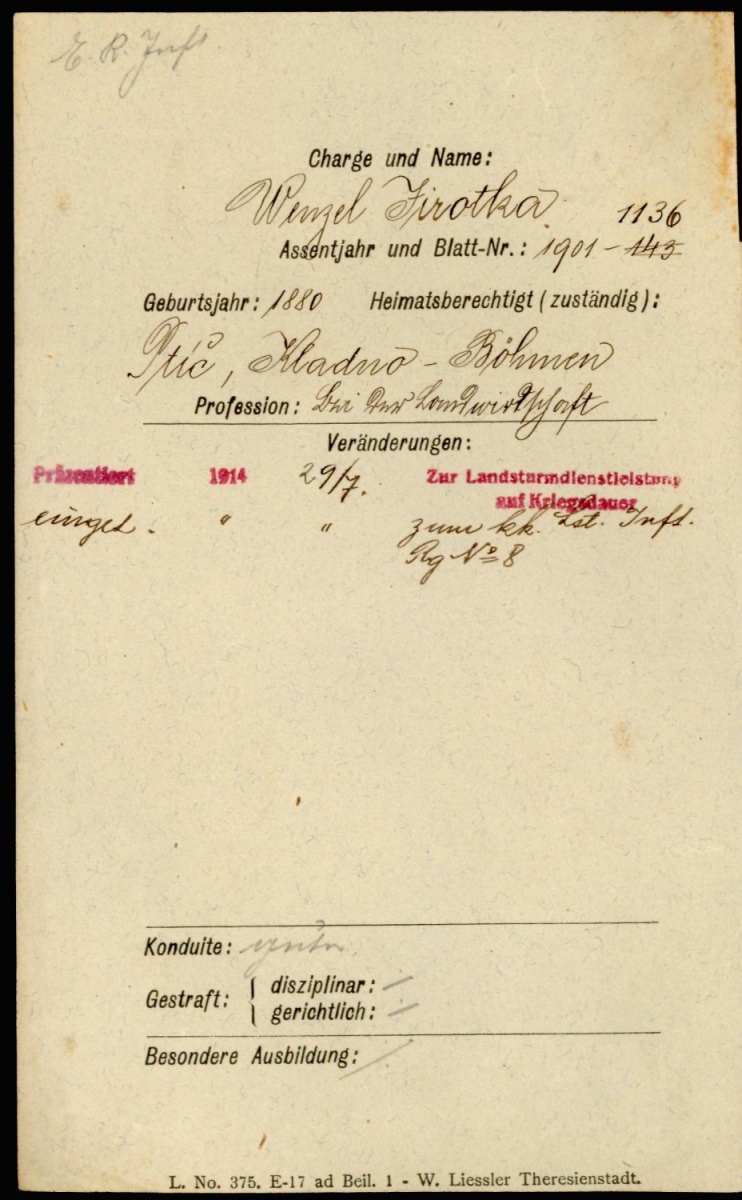 E. R. Inft.
Charge und Name:
Wenzel Jirotka
1136
Assentjahr und Blatt-Nr.: 1901 - 143
Geburtsjahr: 1880 Heimatsberechtigt (zuständig):
Ptič, Kladno - Böhmen
Profession: bei der Landwirtschaft
Veränderungen:
Präsentiert 1914 29/7. Zur Landsturmdienstleistung
auf Kriegsdauer
einget. " " zum kk. Lst. Inft.
Rg No 8
Konduite:
Gestraft: { disziplinar: /
gerichtlich: /
Besondere Ausbildung: /
L. No. 375. E-17 ad Beil. 1 - W. Liessler Theresienstadt.